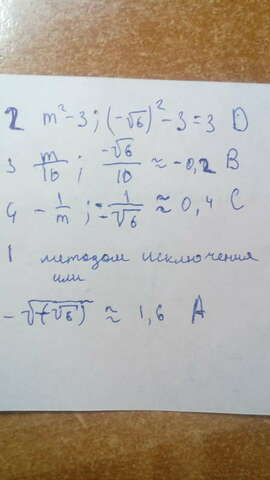 2 m²-3; (-√6)²-3=3 D
3 m/10; -√6/10 ≈ -0,2 B
4 -1/m; -1/-√6 ≈ 0,4 C
1 методом исключения
или
-√(-√6) ≈ 1,6 A